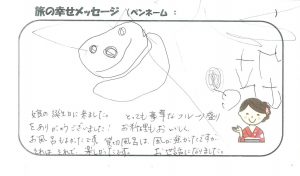 旅の幸せメッセージ（ペンネーム：　　　）
娘の誕生日に来ました。
とっても豪華なフルーツ盛り
をありがとうございました！
お料理もおいしく
お風呂もよかったです
貸切風呂は、風が強かったですが
それはそれで、楽しかったです。
お世話になりました。